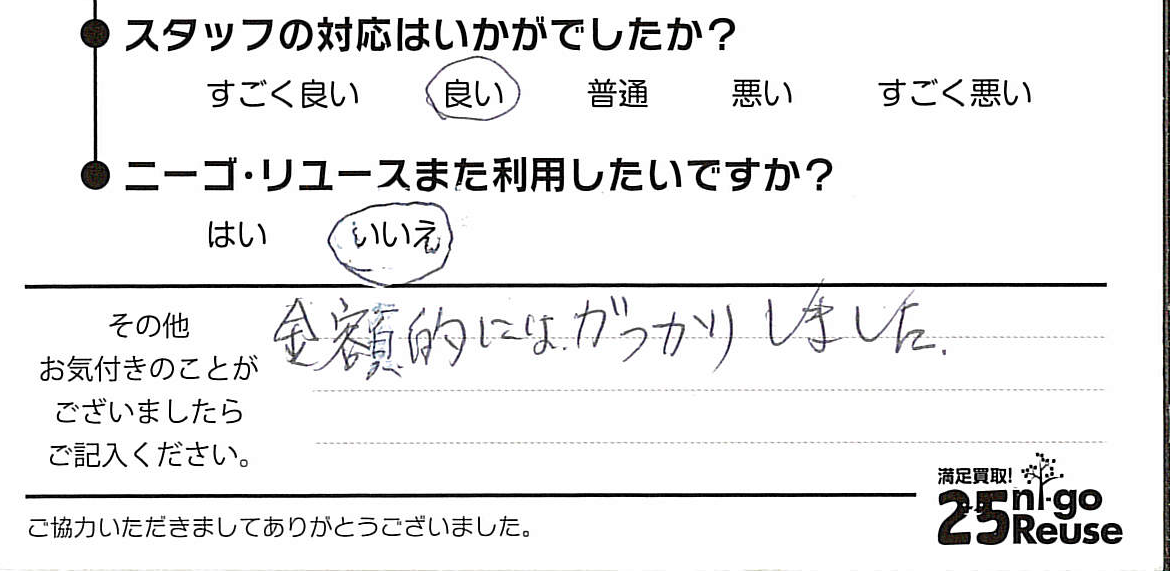 スタッフの対応はいかがでしたか？
すごく良い 良い 普通 悪い すごく悪い
ニーゴ・リユースまた利用したいですか？
はい いいえ
その他
お気付きのことが
ございましたら
ご記入ください。
金額的にはがっかりしました.
満足買取!
25 ni-go
Reuse
ご協力いただきましてありがとうございました。